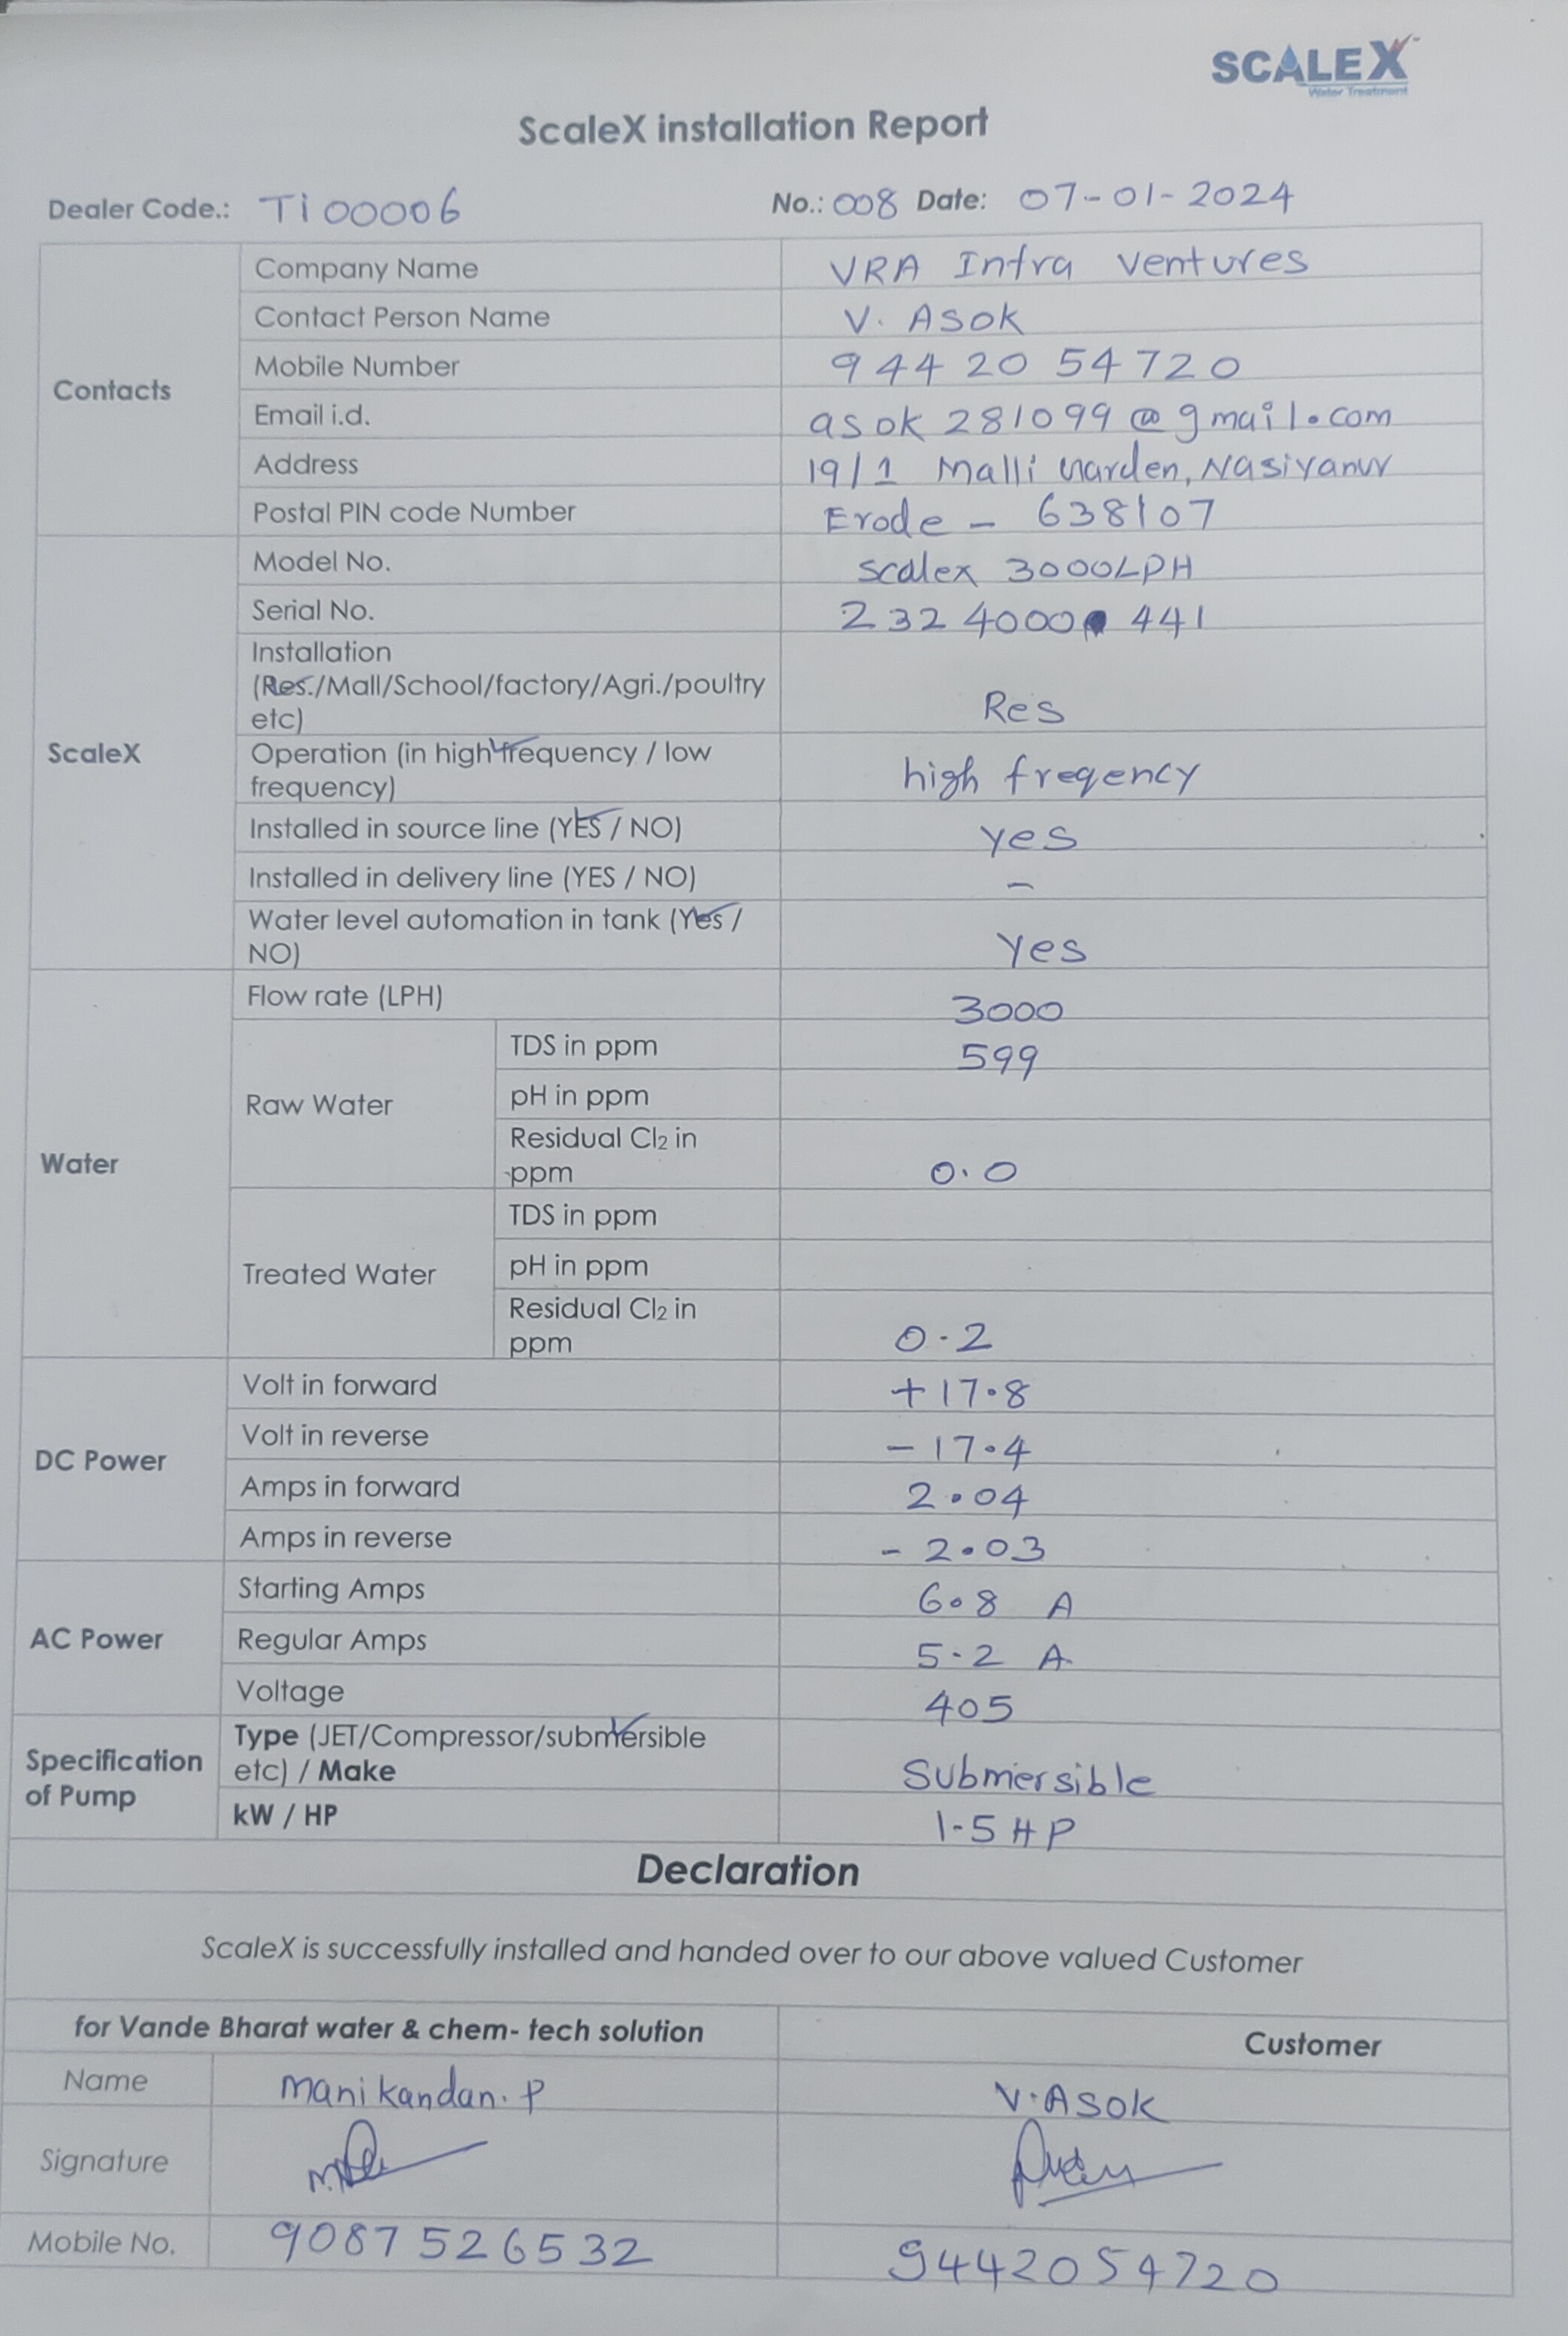 SCALEX
Water Treatment
ScaleX installation Report
Dealer Code.: Ti 00006 No.: 008 Date: 07-01-2024
Contacts
Company Name VRA Infra Ventures
Contact Person Name V. Asok
Mobile Number 944 20 54 720
Email i.d. asok 281099@gmail.com
Address 19/1 Malli Garden, Nasiyanur
Postal PIN code Number Erode - 638107
ScaleX
Model No. scalex 3000LPH
Serial No. 232 4000 441
Installation
(Res./Mall/School/factory/Agri./poultry
etc) Res
Operation (in high frequency / low
frequency) high freqency
Installed in source line (YES / NO) yes
Installed in delivery line (YES / NO) -
Water level automation in tank (Yes /
NO) Yes
Water
Flow rate (LPH) 3000
Raw Water
TDS in ppm 599
pH in ppm
Residual Cl2 in
ppm 0.0
Treated Water
TDS in ppm
pH in ppm
Residual Cl2 in
ppm 0.2
DC Power
Volt in forward +17.8
Volt in reverse -17.4
Amps in forward 2.04
Amps in reverse -2.03
AC Power
Starting Amps 6.8 A
Regular Amps 5.2 A
Voltage 405
Specification
of Pump
Type (JET/Compressor/submersible
etc) / Make Submersible
kW / HP 1.5 HP
Declaration
ScaleX is successfully installed and handed over to our above valued Customer
for Vande Bharat water & chem- tech solution Customer
Name manikandan. P V. ASOK
Signature
Mobile No. 9087 526532 9442054720